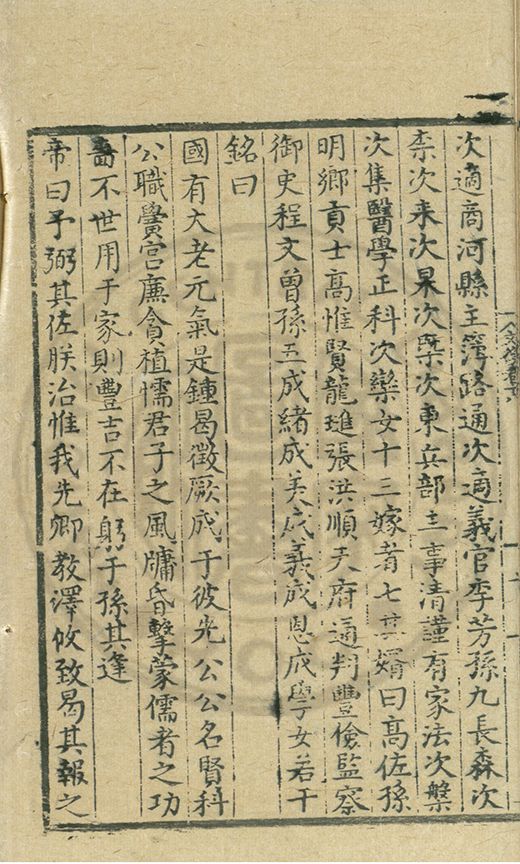 次適商河縣主簿路通次適義官李芳孫九長森次
柰次來次杲次槩次東兵部主事清謹有家法次槃
次集醫學正科次欒女十三嫁者七其婿曰高佐孫
明鄉貢士高惟賢龍瓘張洪順天府通判豐儉監察
御史程文曾孫五成緒成美成義成恩成學女若干
銘曰
國有大老元氣是鍾曷徵厥成于彼先公公名賢科
公職黌宮廉貪植懦君子之風牖昏擊蒙儒者之功
嗇不世用于家則豐吉不在躬于孫其逢
帝曰予弼其佐朕治惟我先卿教澤攸致曷其報之